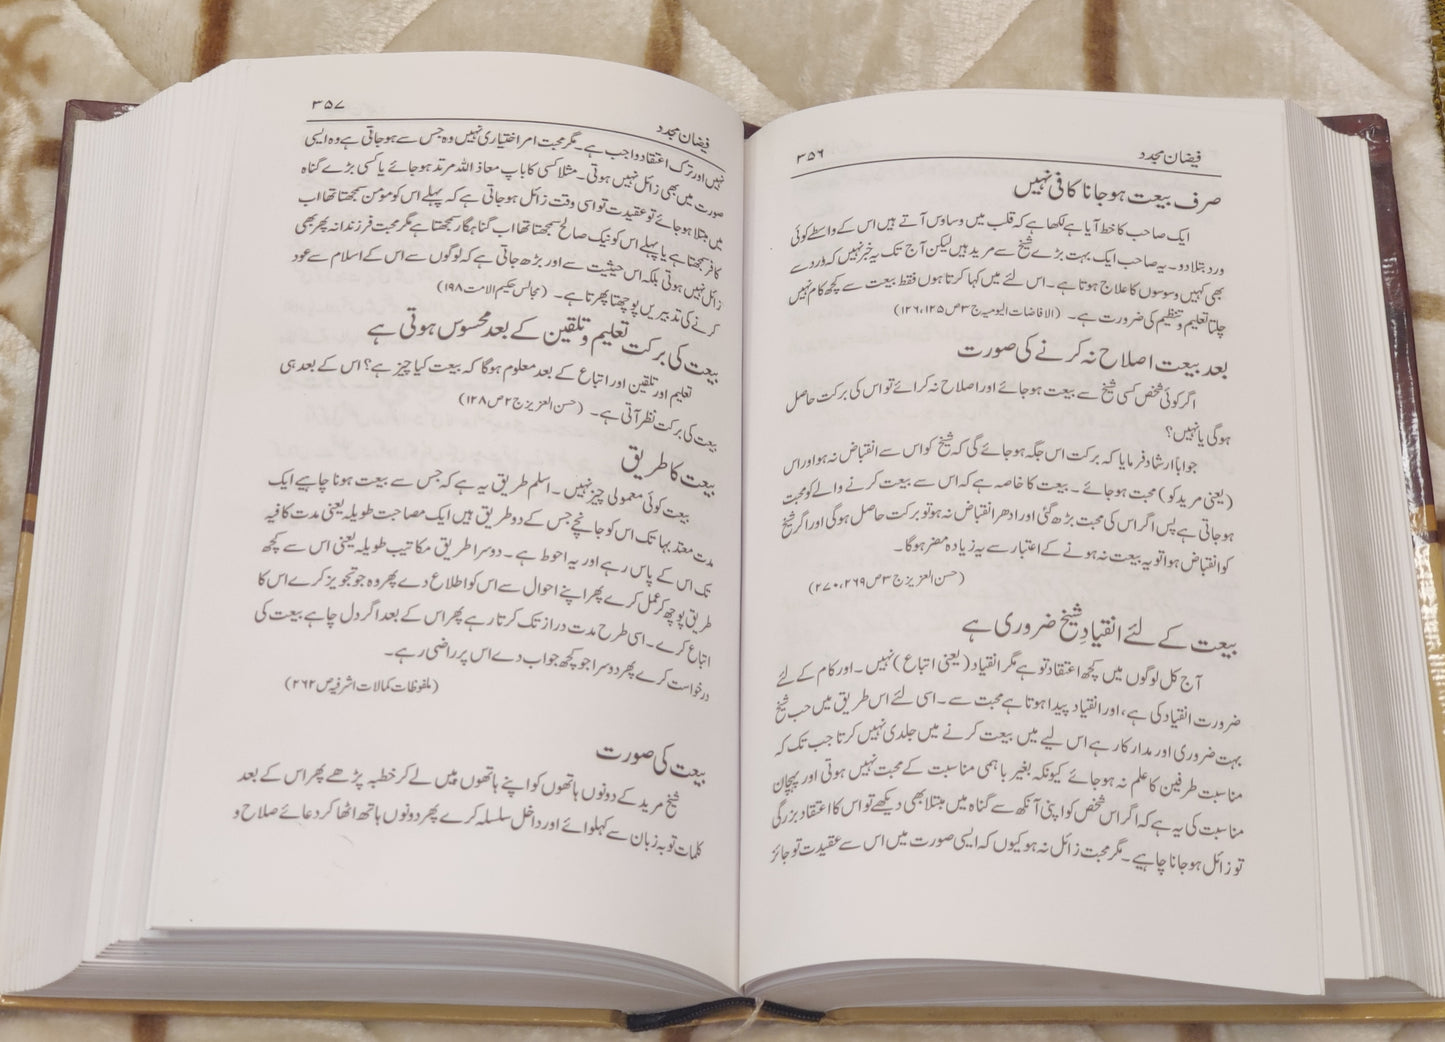 فیضان مجدد
۳۵۶
صرف بیعت ہو جانا کافی نہیں
ایک صاحب کا خط آیا ہے لکھا ہے کہ قلب میں وساوس آتے ہیں اس کے واسطے کوئی
ورد بتلا دو۔ یہ صاحب ایک بہت بڑے شیخ سے مرید ہیں لیکن آج تک یہ خبر نہیں کہ ورد سے
بھی کہیں وسوسوں کا علاج ہوتا ہے۔ اس لئے میں کہا کرتا ہوں فقط بیعت سے کچھ کام نہیں
چلتا تعلیم و تنظیم کی ضرورت ہے۔ (الافاضات الیومیہ ج ۳ ص ۱۲۵، ۱۲۶)
بعد بیعت اصلاح نہ کرنے کی صورت
اگر کوئی شخص کسی شیخ سے بیعت ہو جائے اور اصلاح نہ کرائے تو اس کی برکت حاصل
ہوگی یا نہیں؟
جواباً ارشاد فرمایا کہ برکت اس جگہ ہو جائے گی کہ شیخ کو اس سے انقباض نہ ہو اور اس
(یعنی مرید کو) محبت ہو جائے۔ بیعت کا خاصہ ہے کہ اس سے بیعت کرنے والے کو محبت
ہو جاتی ہے پس اگر اس کی محبت بڑھ گئی اور ادھر انقباض نہ ہو تو برکت حاصل ہوگی اور اگر شیخ
کو انقباض ہوا تو یہ بیعت نہ ہونے کے اعتبار سے یہ زیادہ مضر ہوگا۔
(حسن العزیز ج ۳ ص ۲۶۹، ۲۷۰)
بیعت کے لئے انقیادِ شیخ ضروری ہے
آج کل لوگوں میں کچھ اعتقاد تو ہے مگر انقیاد (یعنی اتباع) نہیں۔ اور کام کے لئے
ضرورت انقیاد کی ہے، اور انقیاد پیدا ہوتا ہے محبت سے۔ اسی لئے اس طریق میں حب شیخ
بہت ضروری اور مدار کار ہے اس لیے میں بیعت کرنے میں جلدی نہیں کرتا جب تک کہ
مناسبت طرفین کا علم نہ ہو جائے کیونکہ بغیر باہمی مناسبت کے محبت نہیں ہوتی اور پہچان
مناسبت کی یہ ہے کہ اگر اس شخص کو اپنی آنکھ سے گناہ میں مبتلا بھی دیکھے تو اس کا اعتقاد بزرگی
تو زائل ہو جانا چاہیے۔ مگر محبت زائل نہ ہو کیوں کہ ایسی صورت میں اس سے عقیدت تو جائز
فیضان مجدد
۳۵۷
نہیں اور ترک اعتقاد واجب ہے۔ مگر محبت امر اختیاری نہیں وہ جس سے ہو جاتی ہے وہ ایسی
صورت میں بھی زائل نہیں ہوتی۔ مثلاً کسی کا باپ معاذ اللہ مرتد ہو جائے یا کسی بڑے گناہ
میں مبتلا ہو جائے تو عقیدت تو اسی وقت زائل ہو جاتی ہے کہ پہلے اس کو مومن سمجھتا تھا اب
کافر سمجھتا ہے یا پہلے اس کو نیک صالح سمجھتا تھا اب گناہگار سمجھتا ہے مگر محبت فرزندانہ پھر بھی
زائل نہیں ہوتی بلکہ اس حیثیت سے اور بڑھ جاتی ہے کہ لوگوں سے اس کے اسلام سے عود
کرنے کی تدبیریں پوچھتا پھرتا ہے۔ (مجالس حکیم الامت ۱۹۸)
بیعت کی برکت تعلیم و تلقین کے بعد محسوس ہوتی ہے
تعلیم اور تلقین اور اتباع کے بعد معلوم ہوگا کہ بیعت کیا چیز ہے؟ اس کے بعد ہی
بیعت کی برکت نظر آتی ہے۔ (حسن العزیز ج ۲ ص ۱۲۸)
بیعت کا طریق
بیعت کوئی معمولی چیز نہیں۔ اسلم طریق یہ ہے کہ جس سے بیعت ہونا چاہیے ایک
مدت معتد بہا تک اس کو جانچے جس کے دو طریق ہیں ایک مصاحبت طویلہ یعنی مدت کافیہ
تک اس کے پاس رہے اور یہ احوط ہے۔ دوسرا طریق مکاتیب طویلہ یعنی اس سے کچھ
طریق پوچھ کر عمل کرے پھر اپنے احوال سے اس کو اطلاع دے پھر وہ جو تجویز کرے اس کا
اتباع کرے۔ اسی طرح مدت دراز تک کرتا رہے پھر اس کے بعد اگر دل چاہے بیعت کی
درخواست کرے پھر دوسرا جو کچھ جواب دے اس پر راضی رہے۔
(ملفوظات کمالات اشرفیہ ص ۲۶۲)
بیعت کی صورت
شیخ مرید کے دونوں ہاتھوں کو اپنے ہاتھوں میں لے کر خطبہ پڑھے پھر اس کے بعد
کلمات توبہ زبان سے کہلوائے اور داخل سلسلہ کرے پھر دونوں ہاتھ اٹھا کر دعائے صلاح و